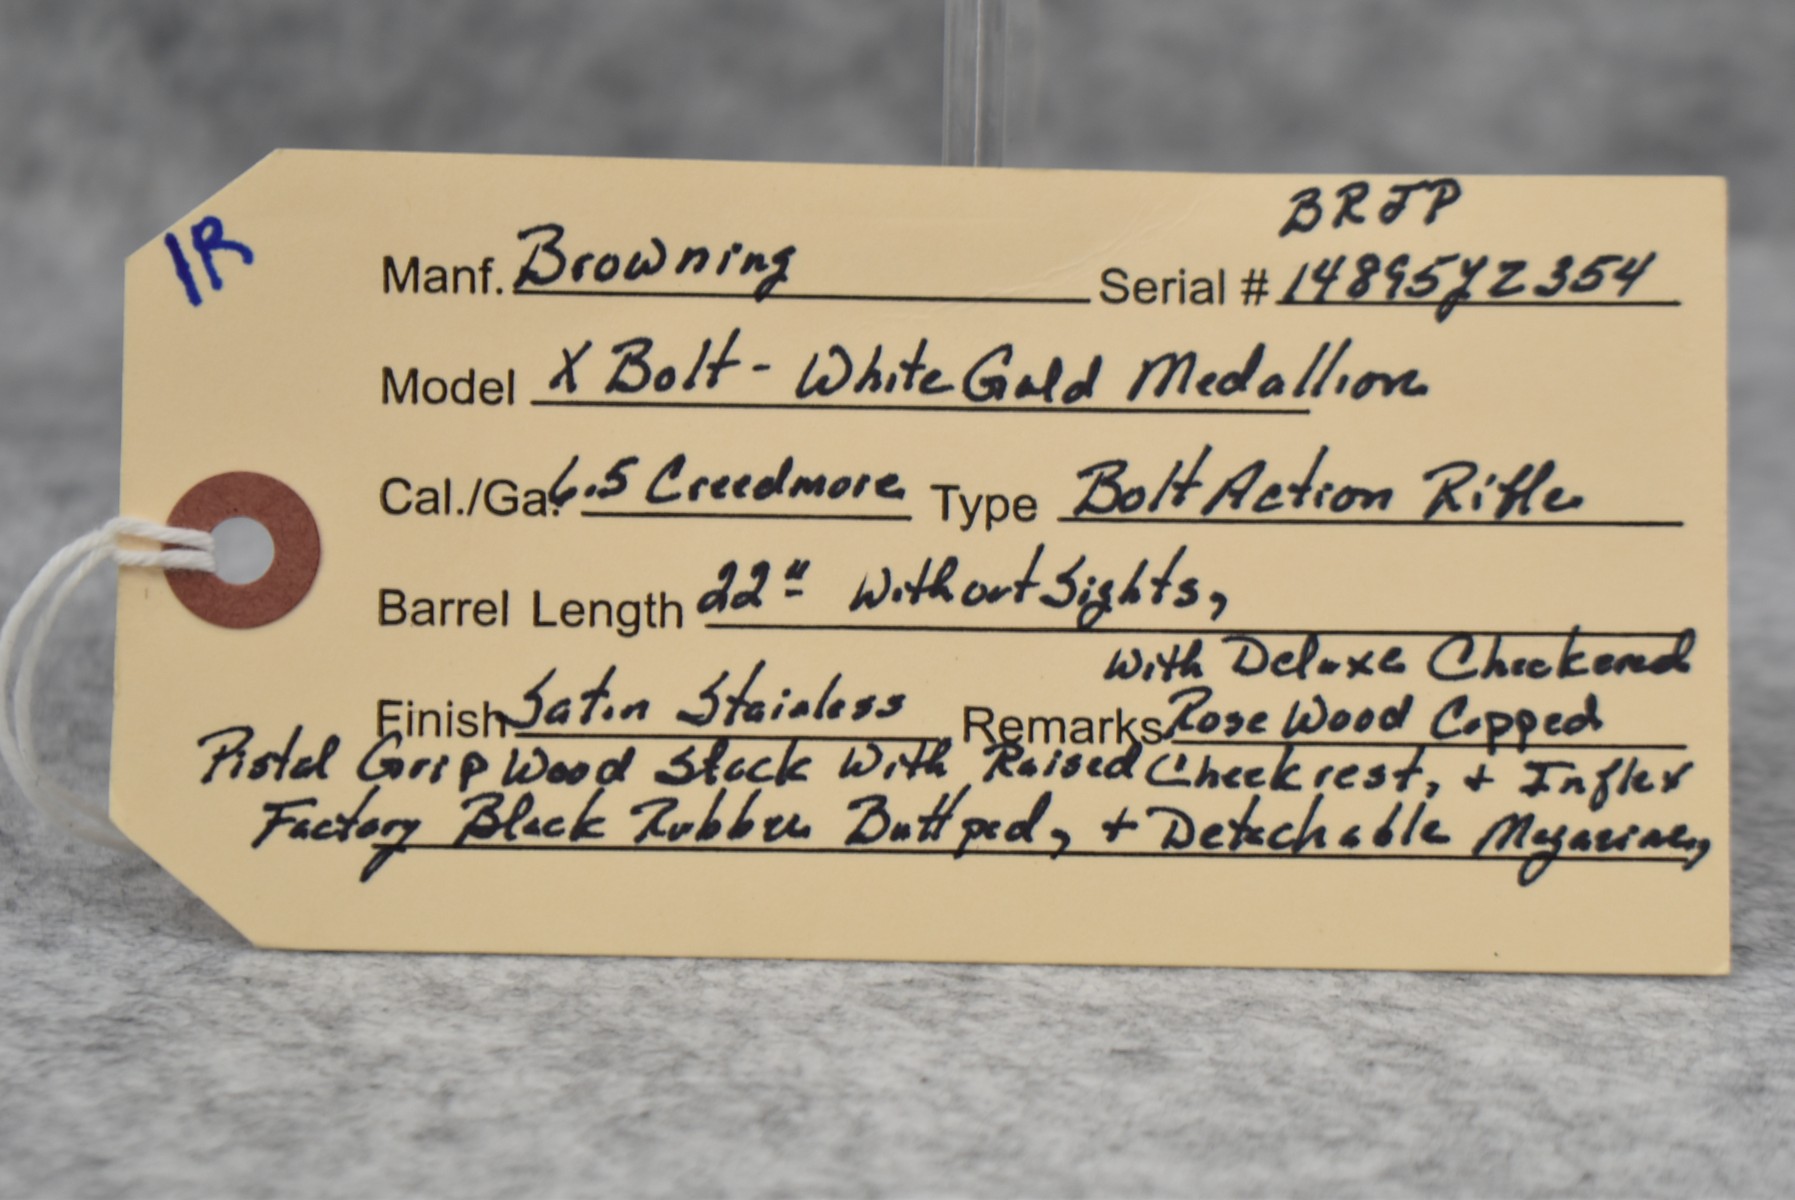 1R
BRJP
Manf. Browning Serial # 14895YZ354
Model X Bolt - White Gold Medallion
Cal./Ga. 6.5 Creedmore Type Bolt Action Rifle
Barrel Length 22" Without Sights,
with Deluxe Checkered
Finish Satin Stainless Remarks Rose Wood Capped
Pistol Grip Wood Stock With Raised Cheekrest, + Inflex
Factory Black Rubber Buttpad, + Detachable Magazine,